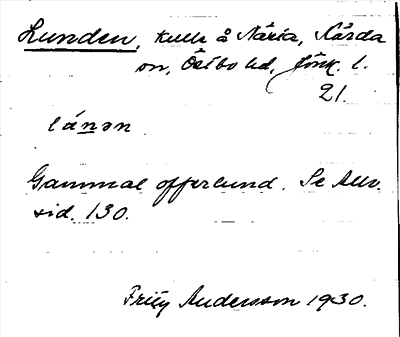 Lunden, kulle å Näria, Kärda
sn, Östbo hd, Jönk. l.
21.
lánən
Gammal offerlund. Se Allv.
sid. 130.
Fritz Andersson 1930.